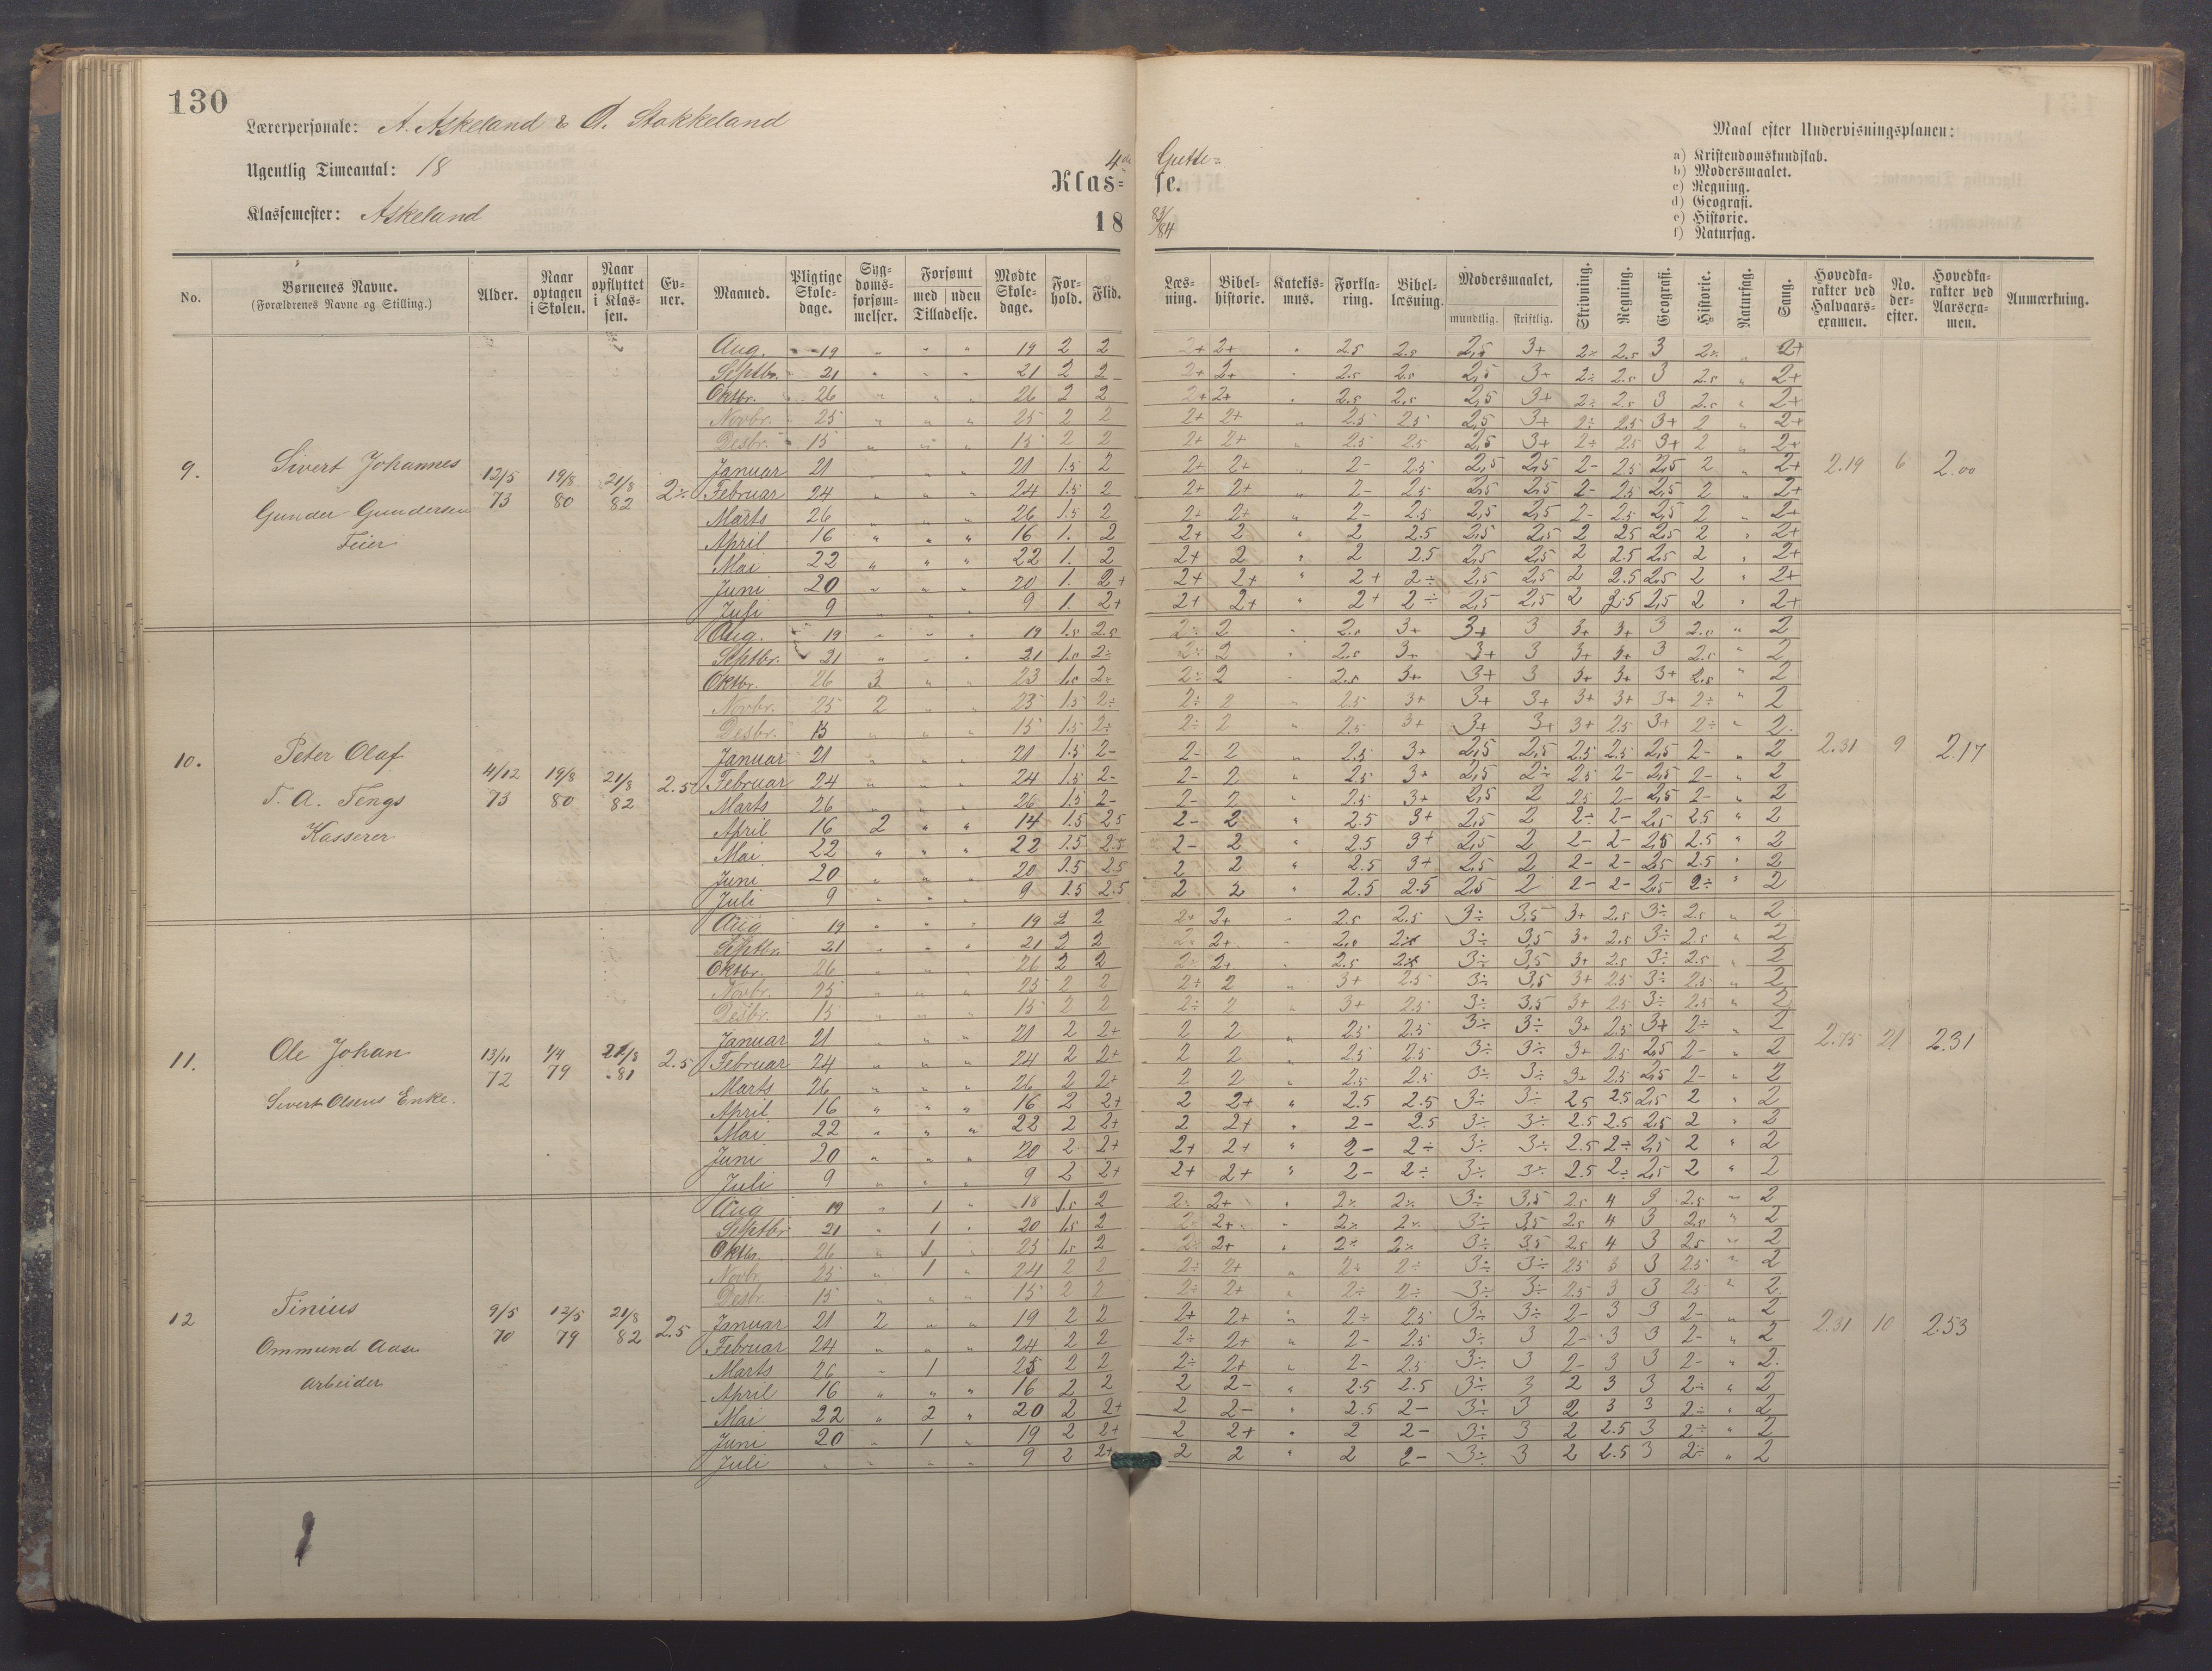 130
Lærerpersonale: A. Askeland & O. Stokkeland
Ugentlig Timeantal: 18
Klassemester: Askeland
4de Gutte-
Klas= se.
18 83/84
Maal efter Undervisningsplanen:
a) Kristendomskundskab.
b) Modersmaalet.
c) Regning.
d) Geografi.
e) Historie.
f) Naturfag.
No. | Børnenes Navne. (Forældrenes Navne og Stilling.) | Alder. | Naar optagen i Skolen. | Naar opflyttet i Klassen. | Evner. | Maaned. | Pligtige Skoledage. | Sygdomsforsømmelser. | Forsømt med uden Tilladelse. | Mødte Skoledage. | Forhold. | Flid. | Læsning. | Bibelhistorie. | Katekismus. | Forklaring. | Bibellæsning. | Modersmaalet, mundtlig. skriftlig. | Skrivning. | Regning. | Geografi. | Historie. | Naturfag. | Sang. | Hovedkarakter ved Halvaarsexamen. | No. derefter. | Hovedkarakter ved Aarsexamen. | Anmærkning.
9. Sivert Johannes
Gunder Gundersen
Feier
12/5 73 | 19/8 80 | 21/8 82 | 2÷ | 2.19 | 6 | 2.00
Aug. 19 " " " 19 2 2 2+ 2+ " 2.5 2.5 2,5 3+ 2÷ 2.5 3 2÷ " 2+
Septbr. 21 " " " 21 2 2 2+ 2+ " 2.5 2.5 2,5 3+ 2÷ 2.5 3 2.5 " 2+
Oktbr. 26 " " " 26 2 2 2+ 2+ " 2.5 2.5 2,5 3+ 2÷ 2.5 3 2.5 " 2+
Novbr. 25 " " " 25 2 2 2+ 2+ " 2.5 2.5 2,5 3+ 2÷ 2.5 3+ 2 " 2+
Desbr. 15 " " " 15 2 2 2+ 2+ " 2.5 2.5 2,5 3+ 2÷ 2.5 3+ 2 " 2+
Januar 21 " " " 21 1.5 2 2+ 2+ " 2- 2.5 2,5 2,5 2- 2.5 2,5 2 " 2+
Februar 24 " " " 24 1.5 2 2+ 2+ " 2- 2.5 2,5 2,5 2- 2.5 2,5 2 " 2+
Marts 26 " " " 26 1.5 2 2+ 2+ " 2- 2.5 2,5 2,5 2- 2.5 2,5 2 " 2+
April 16 " " " 16 1. 2 2+ 2 " 2 2.5 2,5 2,5 2 2.5 2,5 2 " 2+
Mai 22 " " " 22 1. 2 2+ 2 " 2 2.5 2,5 2,5 2 2.5 2,5 2 " 2+
Juni 20 " " " 20 1. 2+ 2+ 2+ " 2+ 2÷ 2,5 2,5 2 2.5 2,5 2 " 2+
Juli 9 " " " 9 1. 2+ 2+ 2+ " 2+ 2÷ 2,5 2,5 2 2.5 2,5 2 " 2+
10. Peter Olaf
T. A. Tengs
Kasserer
4/12 73 | 19/8 80 | 21/8 82 | 2.5 | 2.31 | 9 | 2.17
Aug. 19 " " " 19 1.5 2.5 2÷ 2 " 2.5 3+ 3+ 3 3+ 3+ 3 2.5 " 2
Septbr. 21 " " " 21 1.5 2÷ 2÷ 2 " 2.5 3+ 3+ 3 3+ 3+ 3 2.5 " 2
Oktbr. 26 3 " " 23 1.5 2÷ 2÷ 2 " 2.5 3+ 3+ 3 3+ 3+ 3+ 2.5 " 2
Novbr. 25 2 " " 23 1.5 2÷ 2÷ 2 " 2.5 3+ 3+ 3+ 3+ 3+ 3+ 2÷ " 2
Desbr. 15 " " " 15 1.5 2÷ 2÷ 2 " 2.5 3+ 3+ 3+ 3+ 2.5 3+ 2÷ " 2.
Januar 21 " " " 21 1.5 2- 2- 2 " 2.5 3+ 2,5 2,5 2.5 2.5 2,5 2- " 2
Februar 24 " " " 24 1.5 2- 2- 2 " 2.5 3+ 2,5 2÷ 2.5 2- 2,5 2- " 2
Marts 26 " " " 26 1.5 2- 2- 2 " 2.5 3+ 2,5 2 2.5 2- 2,5 2- " 2
April 16 2 " " 14 1.5 2.5 2- 2 " 2.5 3+ 2,5 2 2÷ 2- 2,5 2.5 " 2
Mai 22 " " " 22 1.5 2.5 2- 2 " 2.5 3+ 2,5 2 2- 2- 2,5 2.5 " 2
Juni 20 " " " 20 1.5 2.5 2 2 " 2.5 3+ 2,5 2 2- 2- 2,5 2.5 " 2
Juli 9 " " " 9 1.5 2.5 2 2 " 2.5 2.5 2,5 2 2- 2- 2,5 2÷ " 2
11. Ole Johan
Sivert Olsens Enke.
13/11 72 | 1/4 79 | 21/8 81 | 2.5 | 2.75 | 21 | 2.31
Aug 19 " " " 19 2 2 2+ 2+ " 2.5 2.5 3÷ 3,5 3+ 2.5 3÷ 2.5 " 2
Septbr. 21 " " " 21 2 2 2÷ 2+ " 2.5 2÷ 3÷ 3,5 3+ 2.5 3÷ 2.5 " 2
Oktbr. 26 " " " 26 2 2 2÷ 2+ " 2.5 2÷ 3÷ 3,5 3+ 2.5 3÷ 2.5 " 2
Novbr. 25 " " " 25 2 2 2÷ 2 " 3+ 2.5 3÷ 3,5 3+ 2.5 3÷ 2.5 " 2
Desbr. 15 " " " 15 2 2 2÷ 2 " 3+ 2.5 3÷ 3,5 3+ 2.5 3÷ 2.5 " 2
Januar 21 " " " 21 2 2+ 2 2 " 2.5 2.5 3÷ 3÷ 3+ 2.5 3+ 2÷ " 2
Februar 24 " " " 24 2 2+ 2 2 " 2.5 2.5 3÷ 3÷ 3+ 2.5 2,5 2- " 2
Marts 26 " " " 26 2 2+ 2 2 " 2.5 2.5 3÷ 3÷ 3+ 2.5 2,5 2- " 2
April 16 " " " 16 2 2+ 2 2+ " 2.5 2.5 3÷ 3÷ 2.5 2.5 2,5 2 " 2
Mai 22 " " " 22 2 2+ 2 2+ " 2- 2.5 3÷ 3÷ 2.5 2.5 2,5 2 " 2
Juni 20 " " " 20 2 2+ 2+ 2+ " 2- 2÷ 3÷ 3÷ 2.5 2÷ 2,5 2 " 2
Juli 9 " " " 9 2 2+ 2+ 2+ " 2- 2÷ 3÷ 3÷ 2.5 2÷ 2,5 2 " 2
12 Tinius
Ommund Aase
arbeider
9/5 70 | 12/5 79 | 21/8 82 | 2.5 | 2.31 | 10 | 2.53
Aug 19 " 1 " 18 1.5 2 2÷ 2+ " 2÷ 2÷ 3÷ 3,5 2.5 4 3 2.5 " 2
Septbr 21 " 1 " 20 1.5 2 2÷ 2+ " 2÷ 2÷ 3÷ 3,5 2.5 4 3 2.5 " 2
Oktbr. 26 " 1 " 25 1.5 2 2÷ 2+ " 2÷ 2÷ 3÷ 3,5 2.5 4 3 2.5 " 2
Novbr. 25 " 1 " 24 2 2 2÷ 2+ " 2÷ 2÷ 3÷ 3÷ 2.5 3 3 2.5 " 2
Desbr. 15 " " " 15 2 2 2÷ 2+ " 2÷ 2÷ 3÷ 3÷ 2.5 3 3 2.5 " 2
Januar 21 2 " " 19 2 2 2+ 2+ " 2÷ 2.5 3÷ 3÷ 2- 3 3 2- " 2
Februar 24 " " " 24 2 2 2÷ 2+ " 2- 2.5 3÷ 3 2- 3 3 2- " 2
Marts 26 " 1 " 25 2 2 2÷ 2+ " 2- 2.5 3÷ 3 2- 3 3 2- " 2.
April 16 " " " 16 2 2 2 2- " 2.5 2.5 3÷ 3 2 3 3 2÷ " 2
Mai 22 " 2 " 20 2 2+ 2 2- " 2.5 2- 3÷ 3 2 3 3 2÷ " 2
Juni 20 " 1 " 19 2 2+ 2 2+ " 2 2- 3÷ 3 2 2.5 3 2÷ " 2
Juli " " " " 9 2 2+ 2 2 " 2 2- 3÷ 3 2 2.5 3 2÷ " 2